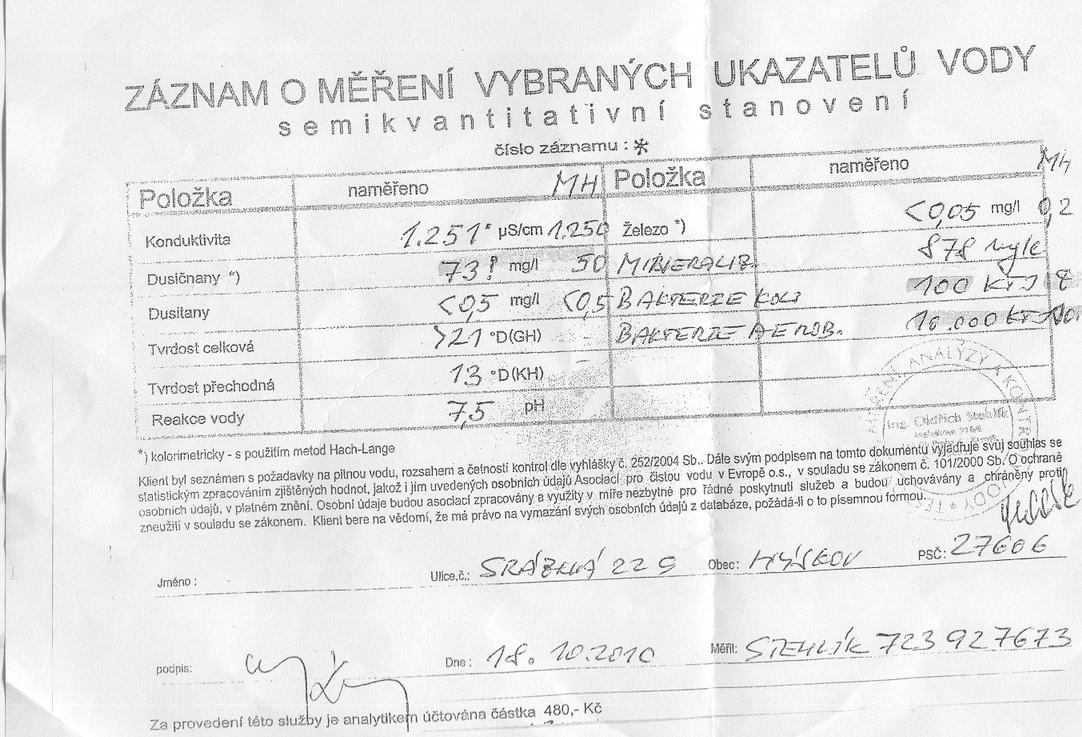 ZÁZNAM O MĚŘENÍ VYBRANÝCH UKAZATELŮ VODY
semikvantitativní stanovení
číslo záznamu : *
Položka naměřeno MH Položka naměřeno MH
Konduktivita 1.251 µS/cm 1.250 Železo *) <0,05 mg/l 0,2
Dusičnany *) 73! mg/l 50 MINERALIZ. 878
Dusitany <0,5 mg/l <0,5 BAKTERIE KOLI 100 KTJ
Tvrdost celková >21 °D(GH) BAKTERIE AEROB. 10.000
Tvrdost přechodná 13 °D(KH)
Reakce vody 7,5 pH
Ing. Oldřich Stehlík
*) kolorimetricky - s použitím metod Hach-Lange
Klient byl seznámen s požadavky na pitnou vodu, rozsahem a četností kontrol dle vyhlášky č. 252/2004 Sb.. Dále svým podpisem na tomto dokumentu vyjadřuje svůj souhlas se
statistickým zpracováním zjištěných hodnot, jakož i jím uvedených osobních údajů Asociací pro čistou vodu v Evropě o.s., v souladu se zákonem č. 101/2000 Sb. O ochraně
osobních údajů, v platném znění. Osobní údaje budou asociací zpracovány a využity v míře nezbytné pro řádné poskytnutí služeb a budou uchovávány a chráněny proti
zneužití v souladu se zákonem. Klient bere na vědomí, že má právo na vymazání svých osobních údajů z databáze, požádá-li o to písemnou formou.
Jméno : Ulice,č.: SRÁZNÁ 229 Obec: HÝSKOV PSČ: 27606
podpis: Dne : 18. 10.2010 Měřil: STEHLÍK 723 927673
Za provedení této služby je analytikem účtována částka 480,- Kč